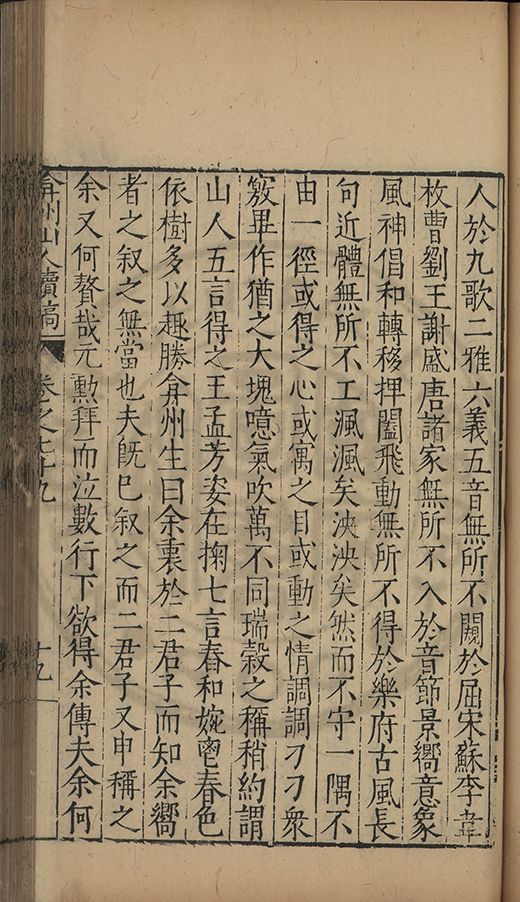 人於九歌二雅六義五音無所不闚於屈宋蘇李韋
枚曹劉王謝盛唐諸家無所不入於音節景嚮意象
風神倡和轉移捭闔飛動無所不得於樂府古風長
句近體無所不工渢渢矣泱泱矣然而不守一隅不
由一徑或得之心或寓之目或動之情調調刁刁衆
竅畢作猶之大塊噫氣吹萬不同瑞穀之稱稍約謂
山人五言得之王孟芳姿在掬七言春和婉鬯春色
依樹多以趣勝弇州生曰余裏於二君子而知余嚮
者之叙之無當也夫旣巳叙之而二君子又申稱之
余又何贅哉元勲拜而泣數行下欲得余傳夫余何
弇州山人續稿 卷之 十九 十五